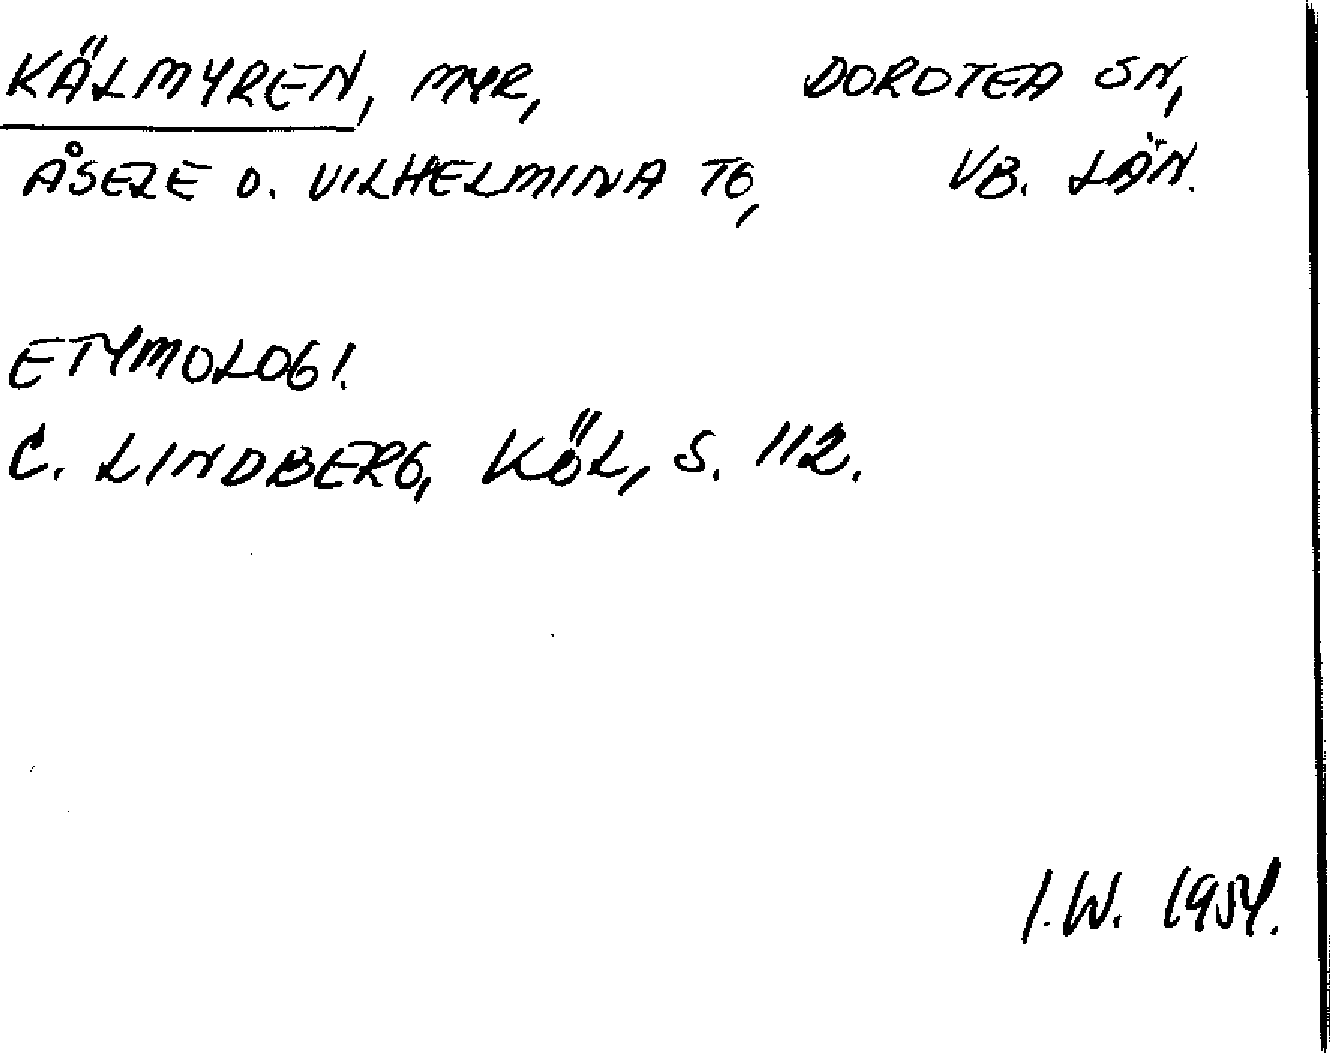 KÄLMYREN, MYR, DOROTEA SN,
ÅSELE O. VILHELMINA TG, VB. LÄN.
ETYMOLOGI.
C. LINDBERG, KÖL, S. 112.
I.W. 1954.